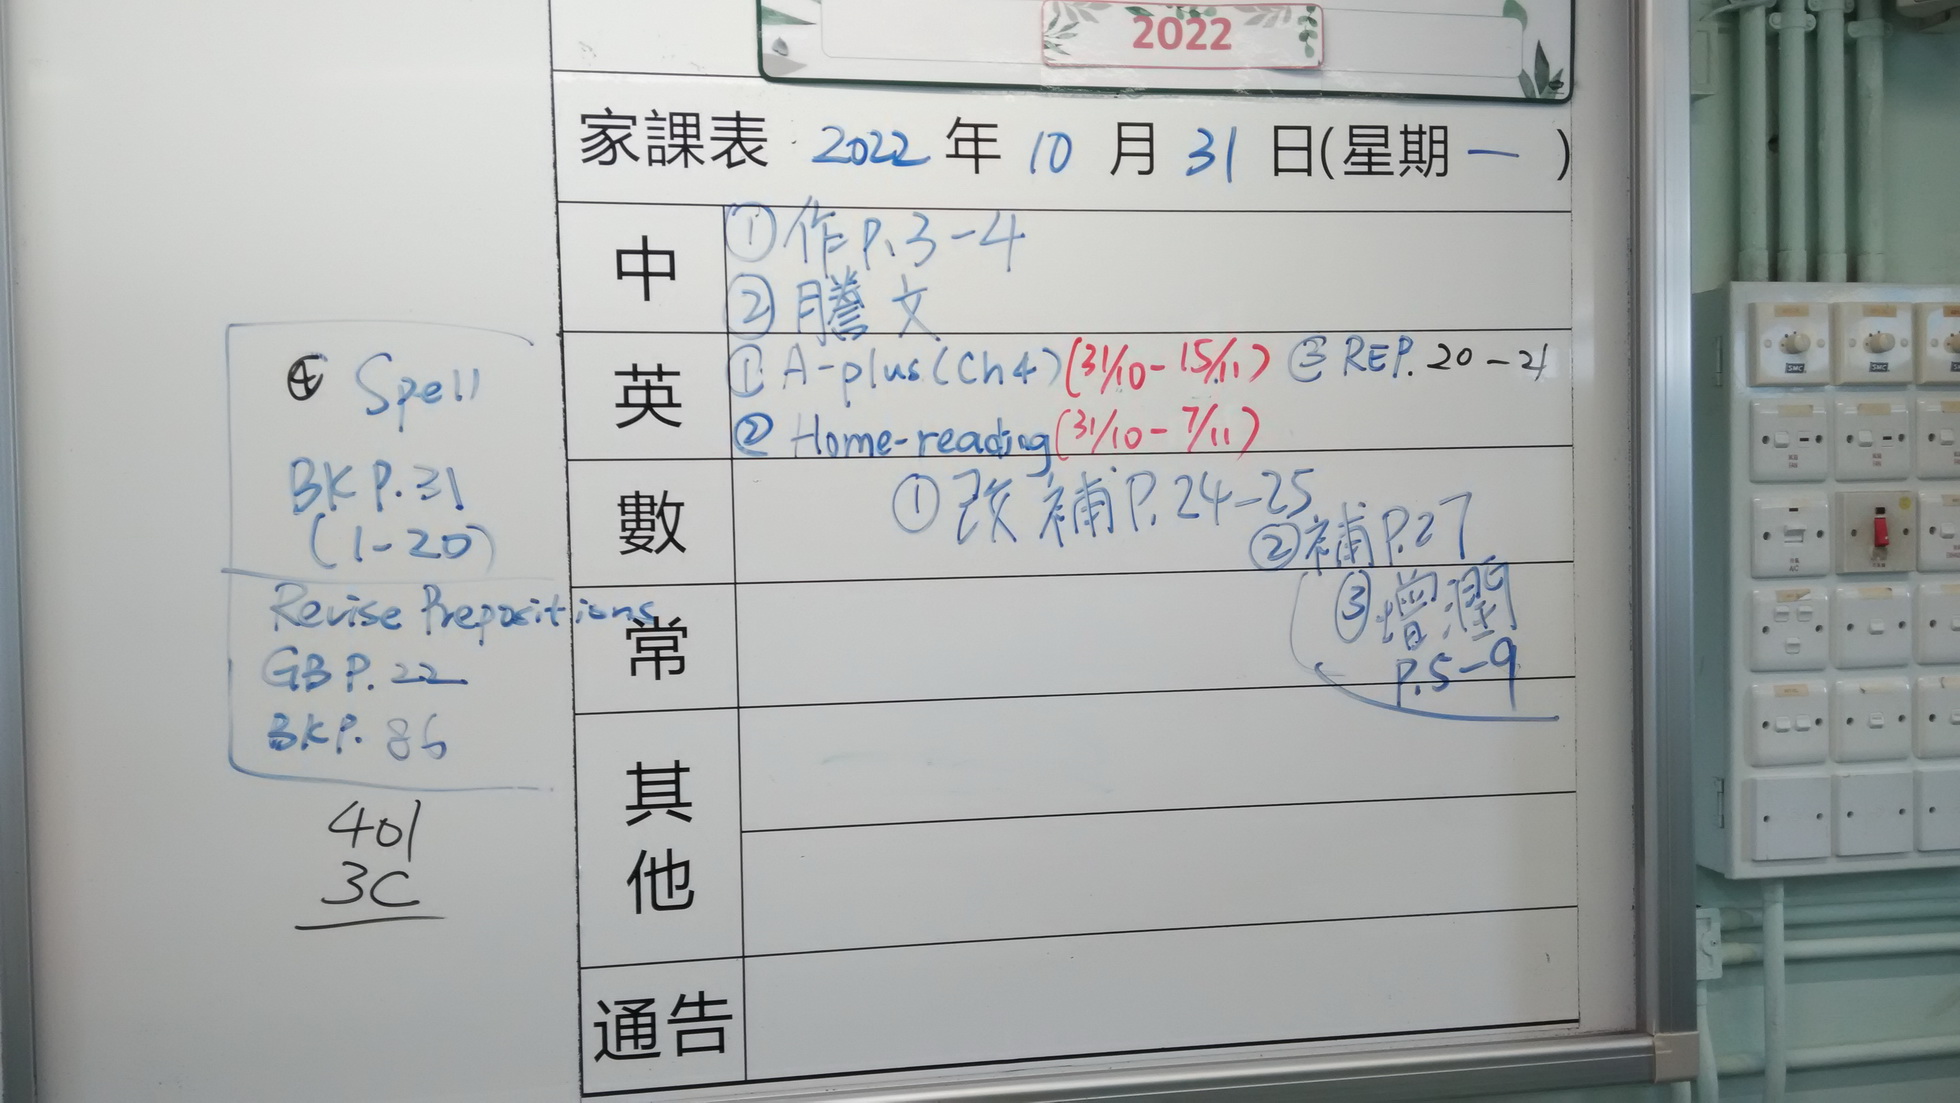 2022
家課表 2022 年 10 月 31 日(星期一)
中
① 作 P.3-4
② 謄文
英
① A-plus (Ch 4) (31/10 - 15/11) ③ REP. 20 - 21
② Home-reading (31/10 - 7/11)
數
① 改補 P.24-25
② 補 P.27
③ 增潤
P.5-9
常
其他
通告
④ Spell
BK P.31
(1-20)
Revise Prepositions
GB P.22
BK P. 86
401
3C